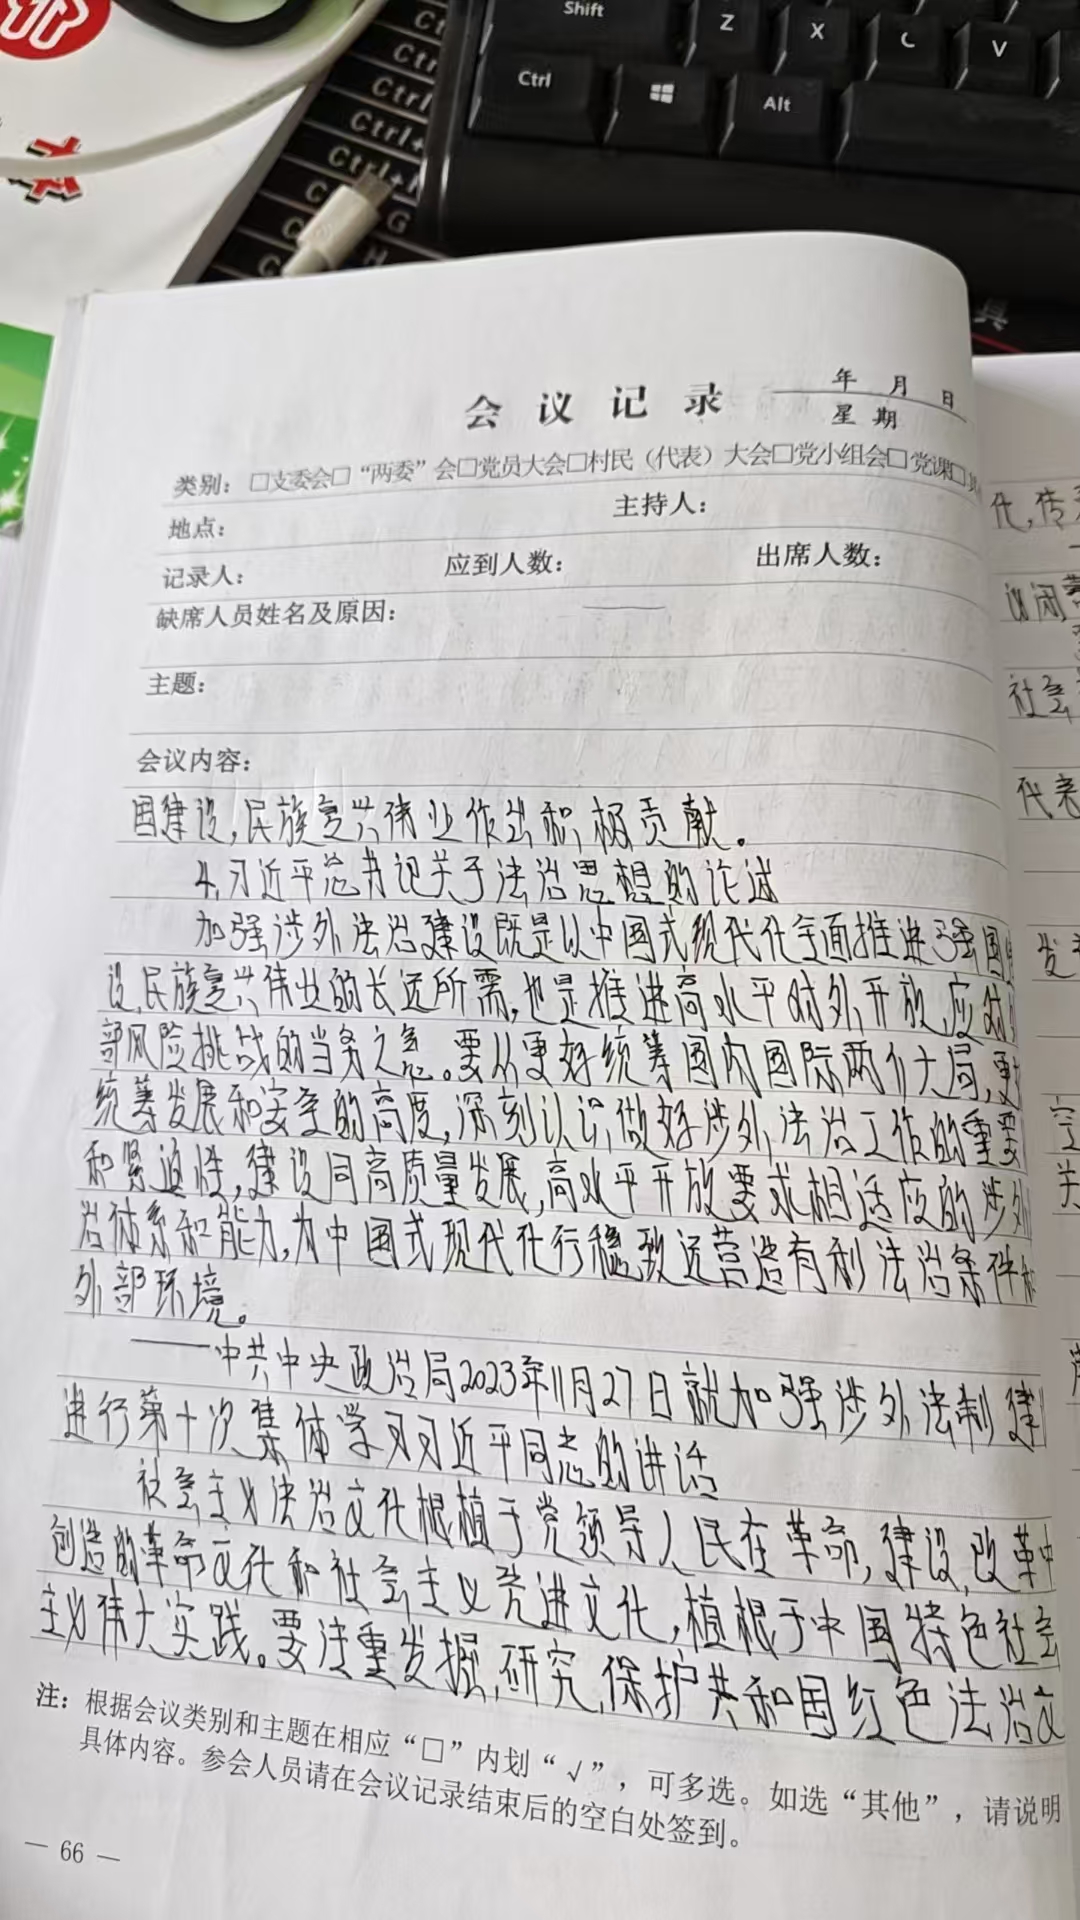 Shift
Z
X
C
V
Ctrl
Alt
会议记录
年 月 日
星期
类别：□支委会□“两委”会□党员大会□村民（代表）大会□党小组会□党课□
地点：
主持人：
记录人：
应到人数：
出席人数：
缺席人员姓名及原因：
主题：
会议内容：
国建设,民族复兴伟业作出积极贡献。
4.习近平总书记关于法治思想的论述
加强涉外法治建设既是以中国式现代化全面推进强国建
设,民族复兴伟业的长远所需,也是推进高水平对外开放,应对外
部风险挑战的当务之急。要从更好统筹国内国际两个大局,更
统筹发展和安全的高度,深刻认识做好涉外法治工作的重要
和紧迫性,建设同高质量发展,高水平开放要求相适应的涉外
治体系和能力,为中国式现代化行稳致远营造有利法治条件和
外部环境。
——中共中央政治局2023年11月27日就加强涉外法制建
进行第十次集体学习习近平同志的讲话
社会主义法治文化根植于党领导人民在革命,建设,改革中
创造的革命文化和社会主义先进文化,植根于中国特色社会
主义伟大实践。要注重发掘,研究,保护共和国红色法治文
注：根据会议类别和主题在相应“□”内划“√”，可多选。如选“其他”，请说明
具体内容。参会人员请在会议记录结束后的空白处签到。
— 66 —
代,传
社会
代表
关